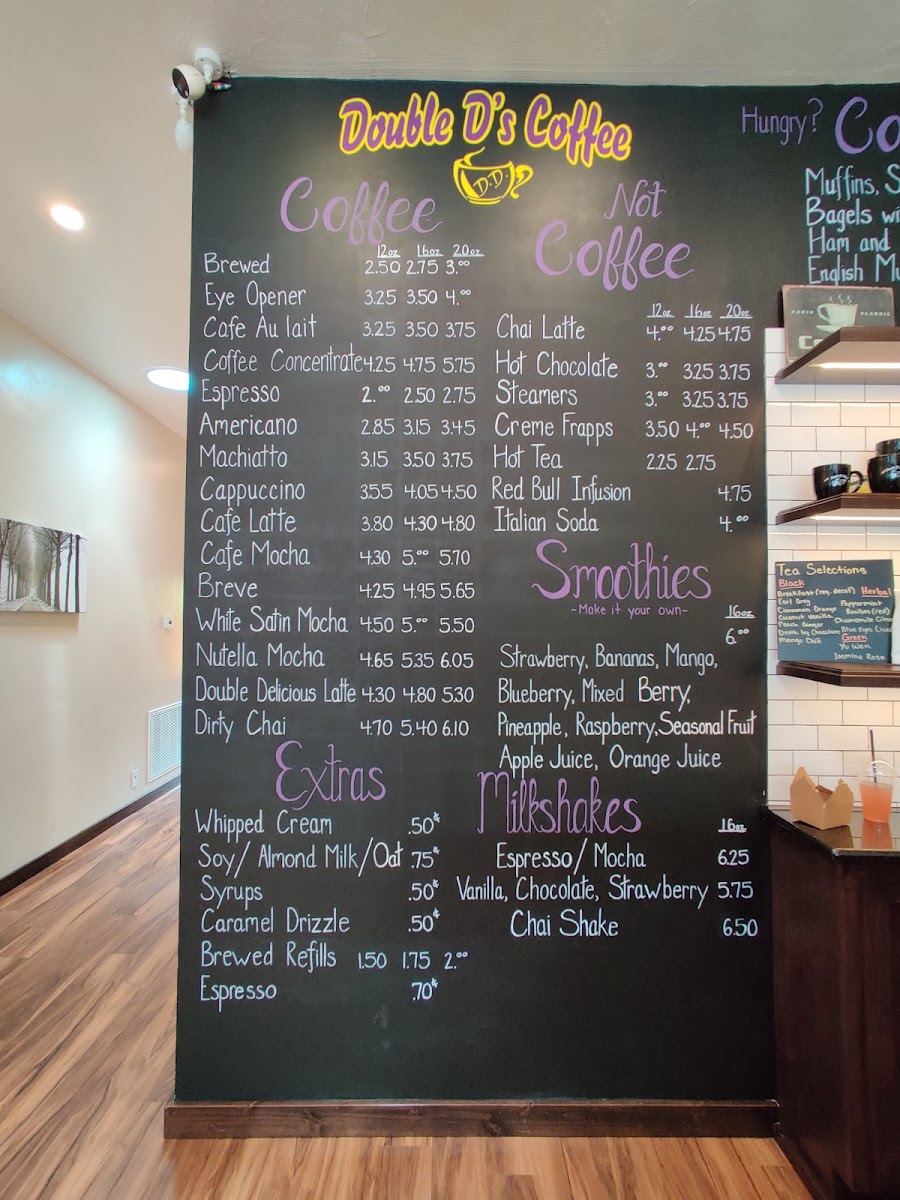 Double D's Coffee
D.D.
Coffee
12oz 16oz 20oz
Brewed 2.50 2.75 3.00
Eye Opener 3.25 3.50 4.00
Cafe Au lait 3.25 3.50 3.75
Coffee Concentrate 4.25 4.75 5.75
Espresso 2.00 2.50 2.75
Americano 2.85 3.15 3.45
Machiatto 3.15 3.50 3.75
Cappuccino 3.55 4.05 4.50
Cafe Latte 3.80 4.30 4.80
Cafe Mocha 4.30 5.00 5.70
Breve 4.25 4.95 5.65
White Satin Mocha 4.50 5.00 5.50
Nutella Mocha 4.65 5.35 6.05
Double Delicious Latte 4.30 4.80 5.30
Dirty Chai 4.70 5.40 6.10
Extras
Whipped Cream .50¢
Soy/ Almond Milk/Oat .75¢
Syrups .50¢
Caramel Drizzle .50¢
Brewed Refills 1.50 1.75 2.00
Espresso .70¢
Not
Coffee
12oz 16oz 20oz
Chai Latte 4.00 4.25 4.75
Hot Chocolate 3.00 3.25 3.75
Steamers 3.00 3.25 3.75
Creme Frapps 3.50 4.00 4.50
Hot Tea 2.25 2.75
Red Bull Infusion 4.75
Italian Soda 4.00
Smoothies
~Make it your own~
16oz
6.00
Strawberry, Bananas, Mango,
Blueberry, Mixed Berry,
Pineapple, Raspberry, Seasonal Fruit
Apple Juice, Orange Juice
Milkshakes
16oz
Espresso/ Mocha 6.25
Vanilla, Chocolate, Strawberry 5.75
Chai Shake 6.50
Hungry? Co
Muffins, S
Bagels wi
Ham and
English Mu
PARIS CLASSIC
Tea Selections
Black
Breakfast (reg, decaf)
Earl Grey
Cinnamon Orange
Coconut Vanilla
Peach Ginger
Death by Chocolate
Mango Chili
Herbal
Peppermint
Rooibos (red)
Chamomile Citrus
Blue Eyes (iced
Green
Yu Wen
Jasmine Rose